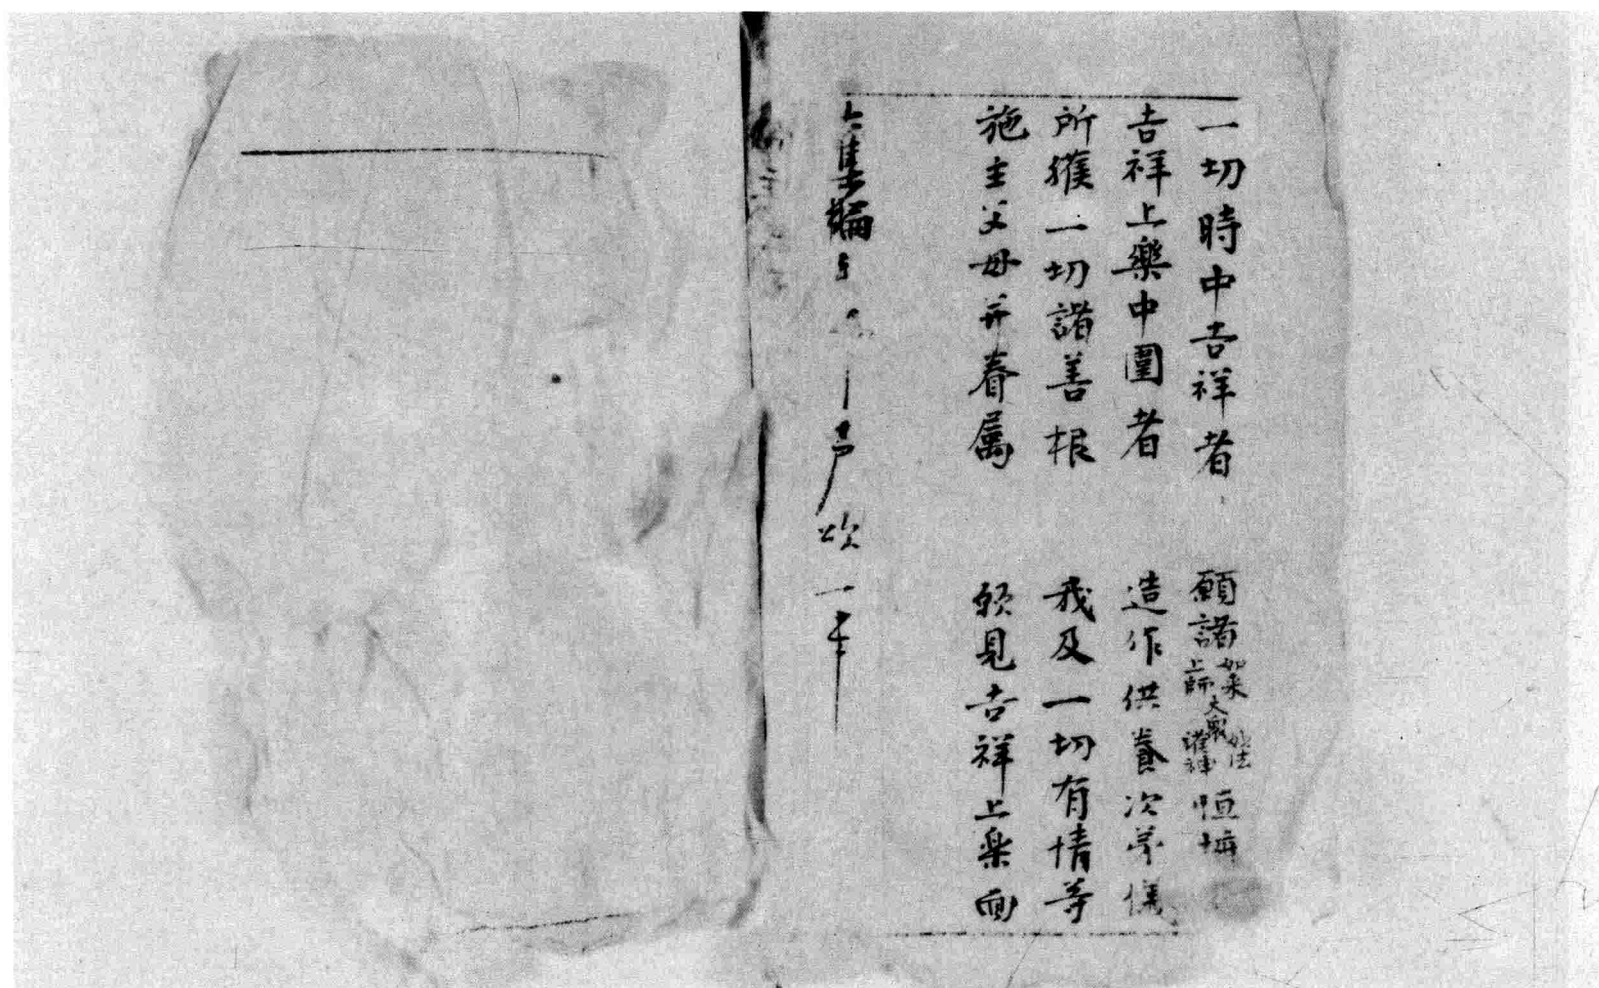 一切時中吉祥者 願諸如来妙法上師大眾護神恒擁
吉祥上樂中圍者 造作供養次第儀
所獲一切諸善根 我及一切有情等
施主父母并眷属 願見吉祥上楽面
集輪 頌一本